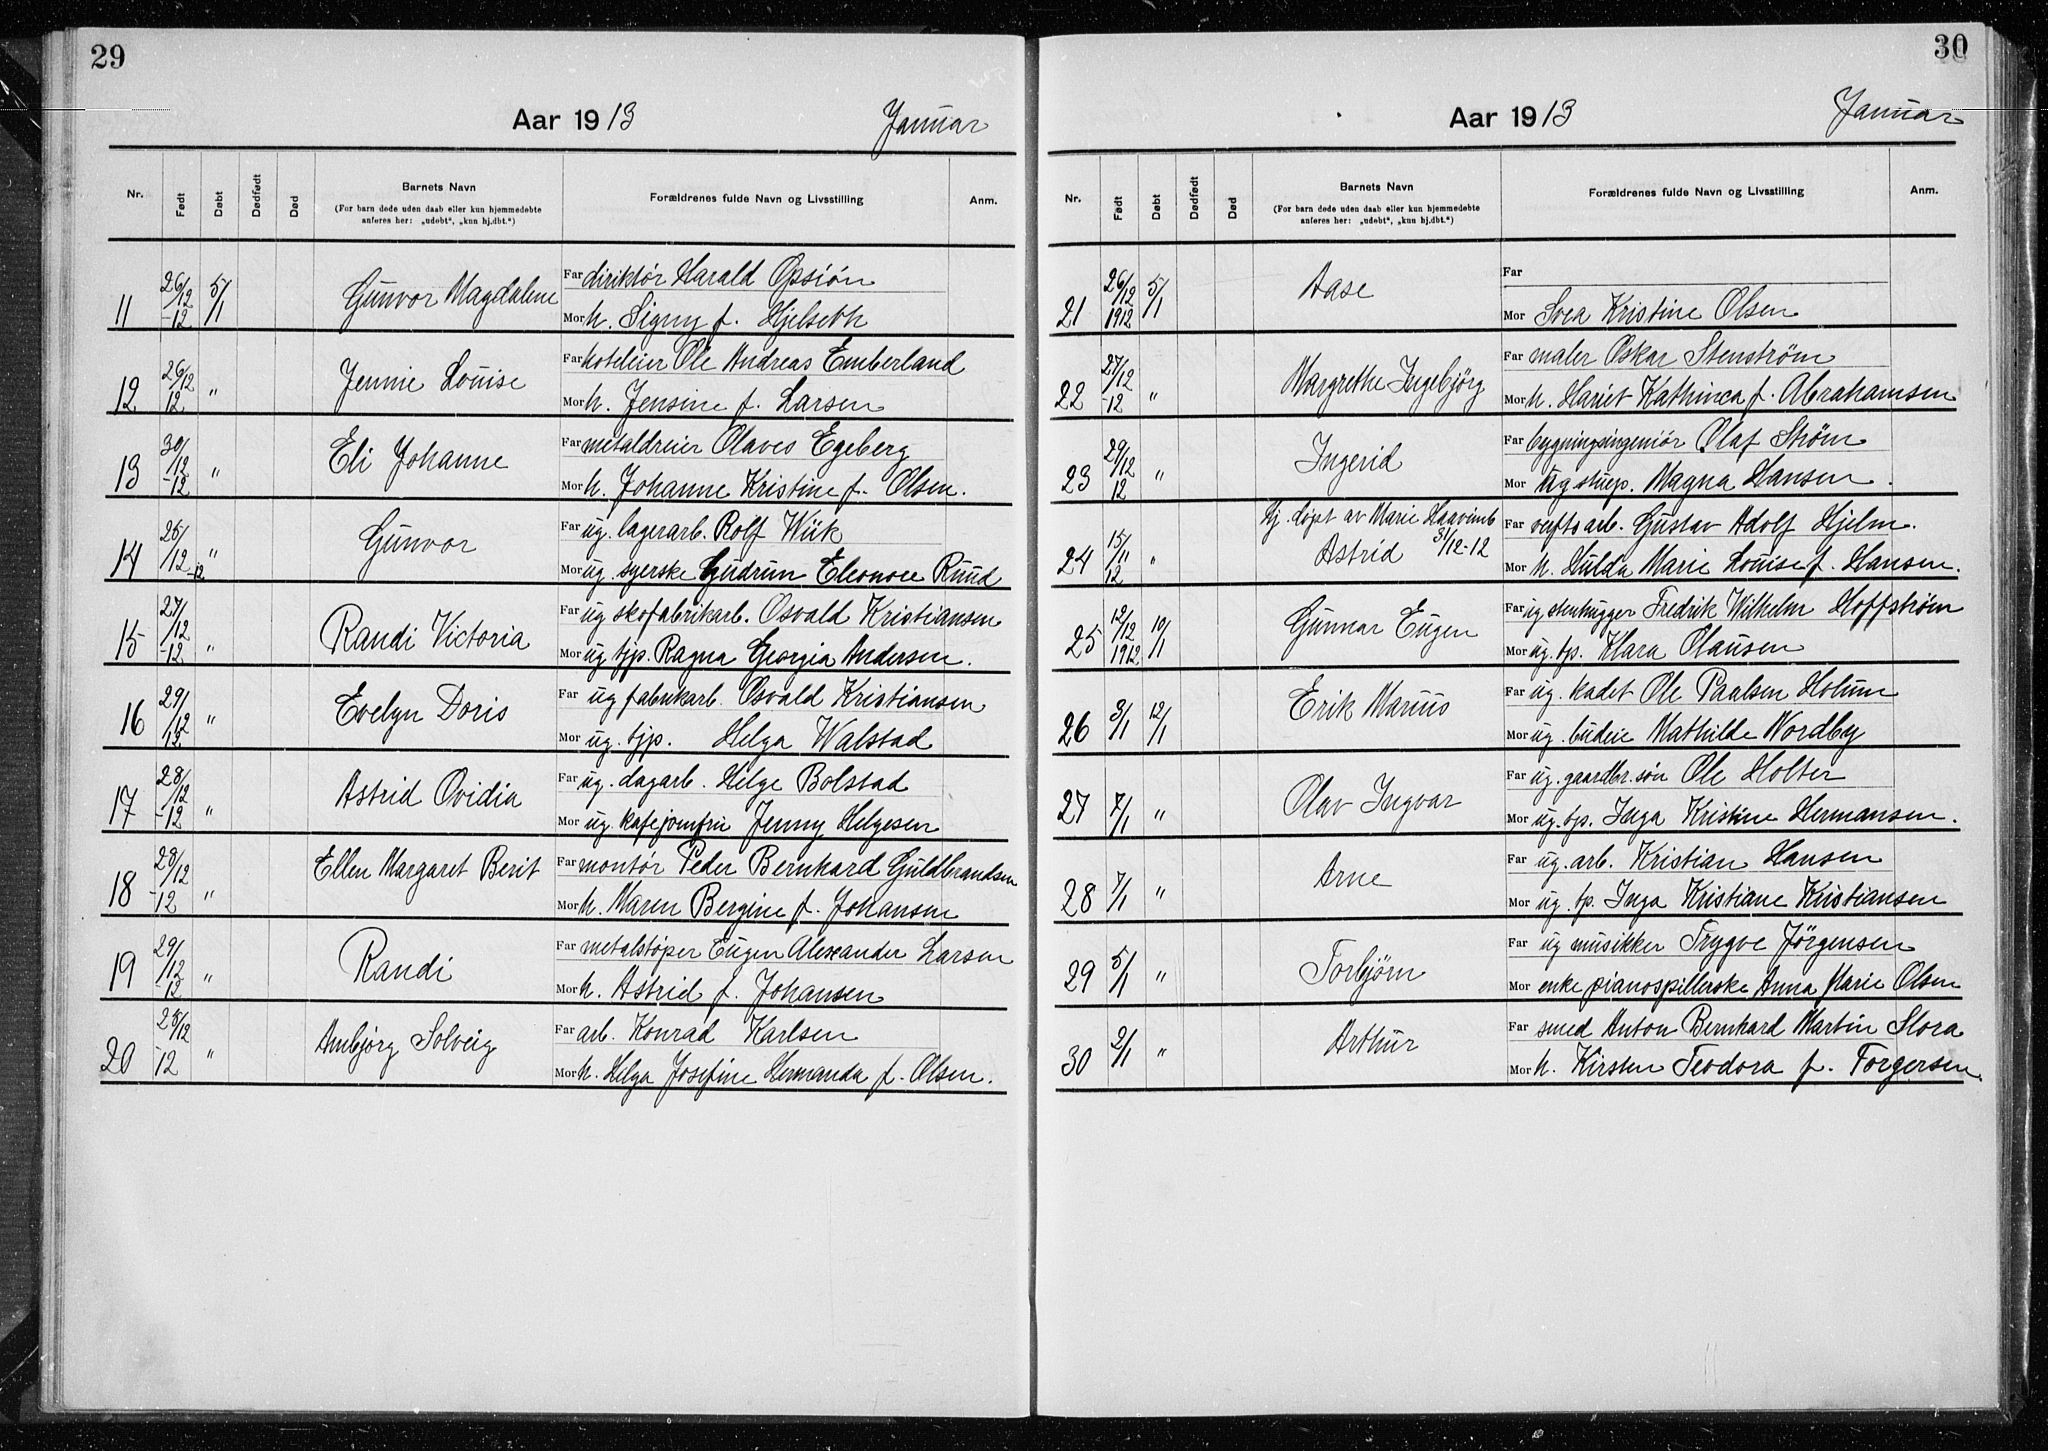 29
Aar 1913 Januar
Nr. Født Døbt Dødfødt Død Barnets Navn Forældrenes fulde Navn og Livsstilling Anm.
(For barn døde uden daab eller kun hjemmedøbte
anføres her: „udøbt“, „kun hj.dbt.“)
26/12 5/1 Gunvor Magdalene Far diriktør Harald Opsiøn
11 -12 Mor h. Signy f. Hjelseth
26/12 Jennie Louise Far hoteleier Ole Andreas Emberland
12. 12 " Mor h. Jensine f. Larsen
30/12 Eli Johanne Far metaldreier Olaves Egeberg
13 -12 " Mor h. Johanne Kristine f. Olsen.
25/12 " Gunvor Far ug. lagerarb. Rolf Wiik
14 -12 Mor ug. syerske Gudrun Eleonore Ruud
27/12 Randi Victoria Far ug skofabrikarb. Osvald Kristiansen
15 -12 " Mor ug tjp. Ragna Georgia Andersen.
29/12 Evelyn Doris Far ug fabrikarb. Osvald Kristiansen
16 12 " Mor ug. tjp. Helga Walstad
28/12 Astrid Ovidia Far ug. dagarb. Helge Bolstad
17 -12 " Mor ug. kafejomfru Jenny Helgesen
28/12 Ellen Margaret Berit Far montør Peder Bernhard Guldbrandsen
18 -12 " Mor h. Maren Bergine f. Johansen
29/12 Randi Far metalstøper Eugen Alexander Larsen
19 -12 " Mor h. Astrid f. Johansen
25/12 Ambjørg Solveig Far arb. Konrad Karlsen
20 -12 " Mor h. Helga Josefine Hermanda f. Olsen.
30
Aar 1913 Januar
Nr. Født Døbt Dødfødt Død Barnets Navn Forældrenes fulde Navn og Livsstilling Anm.
(For barn døde uden daab eller kun hjemmedøbte
anføres her: „udøbt“, „kun hj.dbt.“)
26/12 5/1 Aase Far
21 1912 Mor Svea Kristine Olsen
27/12 Margrethe Ingebjörg Far maler Oskar Stenström
22 -12 " Mor h. Hariet Kathinca f. Abrahamsen
29/12 Ingerid Far bygningsingeniör Olaf Strøm
23 12 " Mor ug stuep. Magna Hansen.
Hj. døpt av Marie Far verftsarb. Gustav Adolf Hjelm.
15/11 Astrid 31/12-12
24 12 " Mor h. Hulda Marie Louise f. Hansen.
12/12 10/1 Gunnar Eugen Far ug stenhugger Fredrik Wilhelm Hoffstrøm
25 1912 Mor ug. tp. Klara Olausen
Erik Marius Far ug. kadet Ole Paalsen Holum
26 3/1 12/1 Mor ug. budeie Mathilde Nordby
Olav Ingvar Far ug. gaardbr. søn Ole Holter
27 7/1 " Mor ug. tp. Inga Kristine Hermansen.
Arne Far ug. arb. Kristian Hansen
28 7/1 " Mor ug. tp. Inga Kristiane Kristiansen
Torbjørn Far ug musikker Trygve Jörgensen
29 5/1 " Mor enke pianospillerske Anna Marie Olsen
Arthur Far smed Anton Bernhard Martin Slora
30 2/1 " Mor h. Kirsten Teodora f. Torgersen.